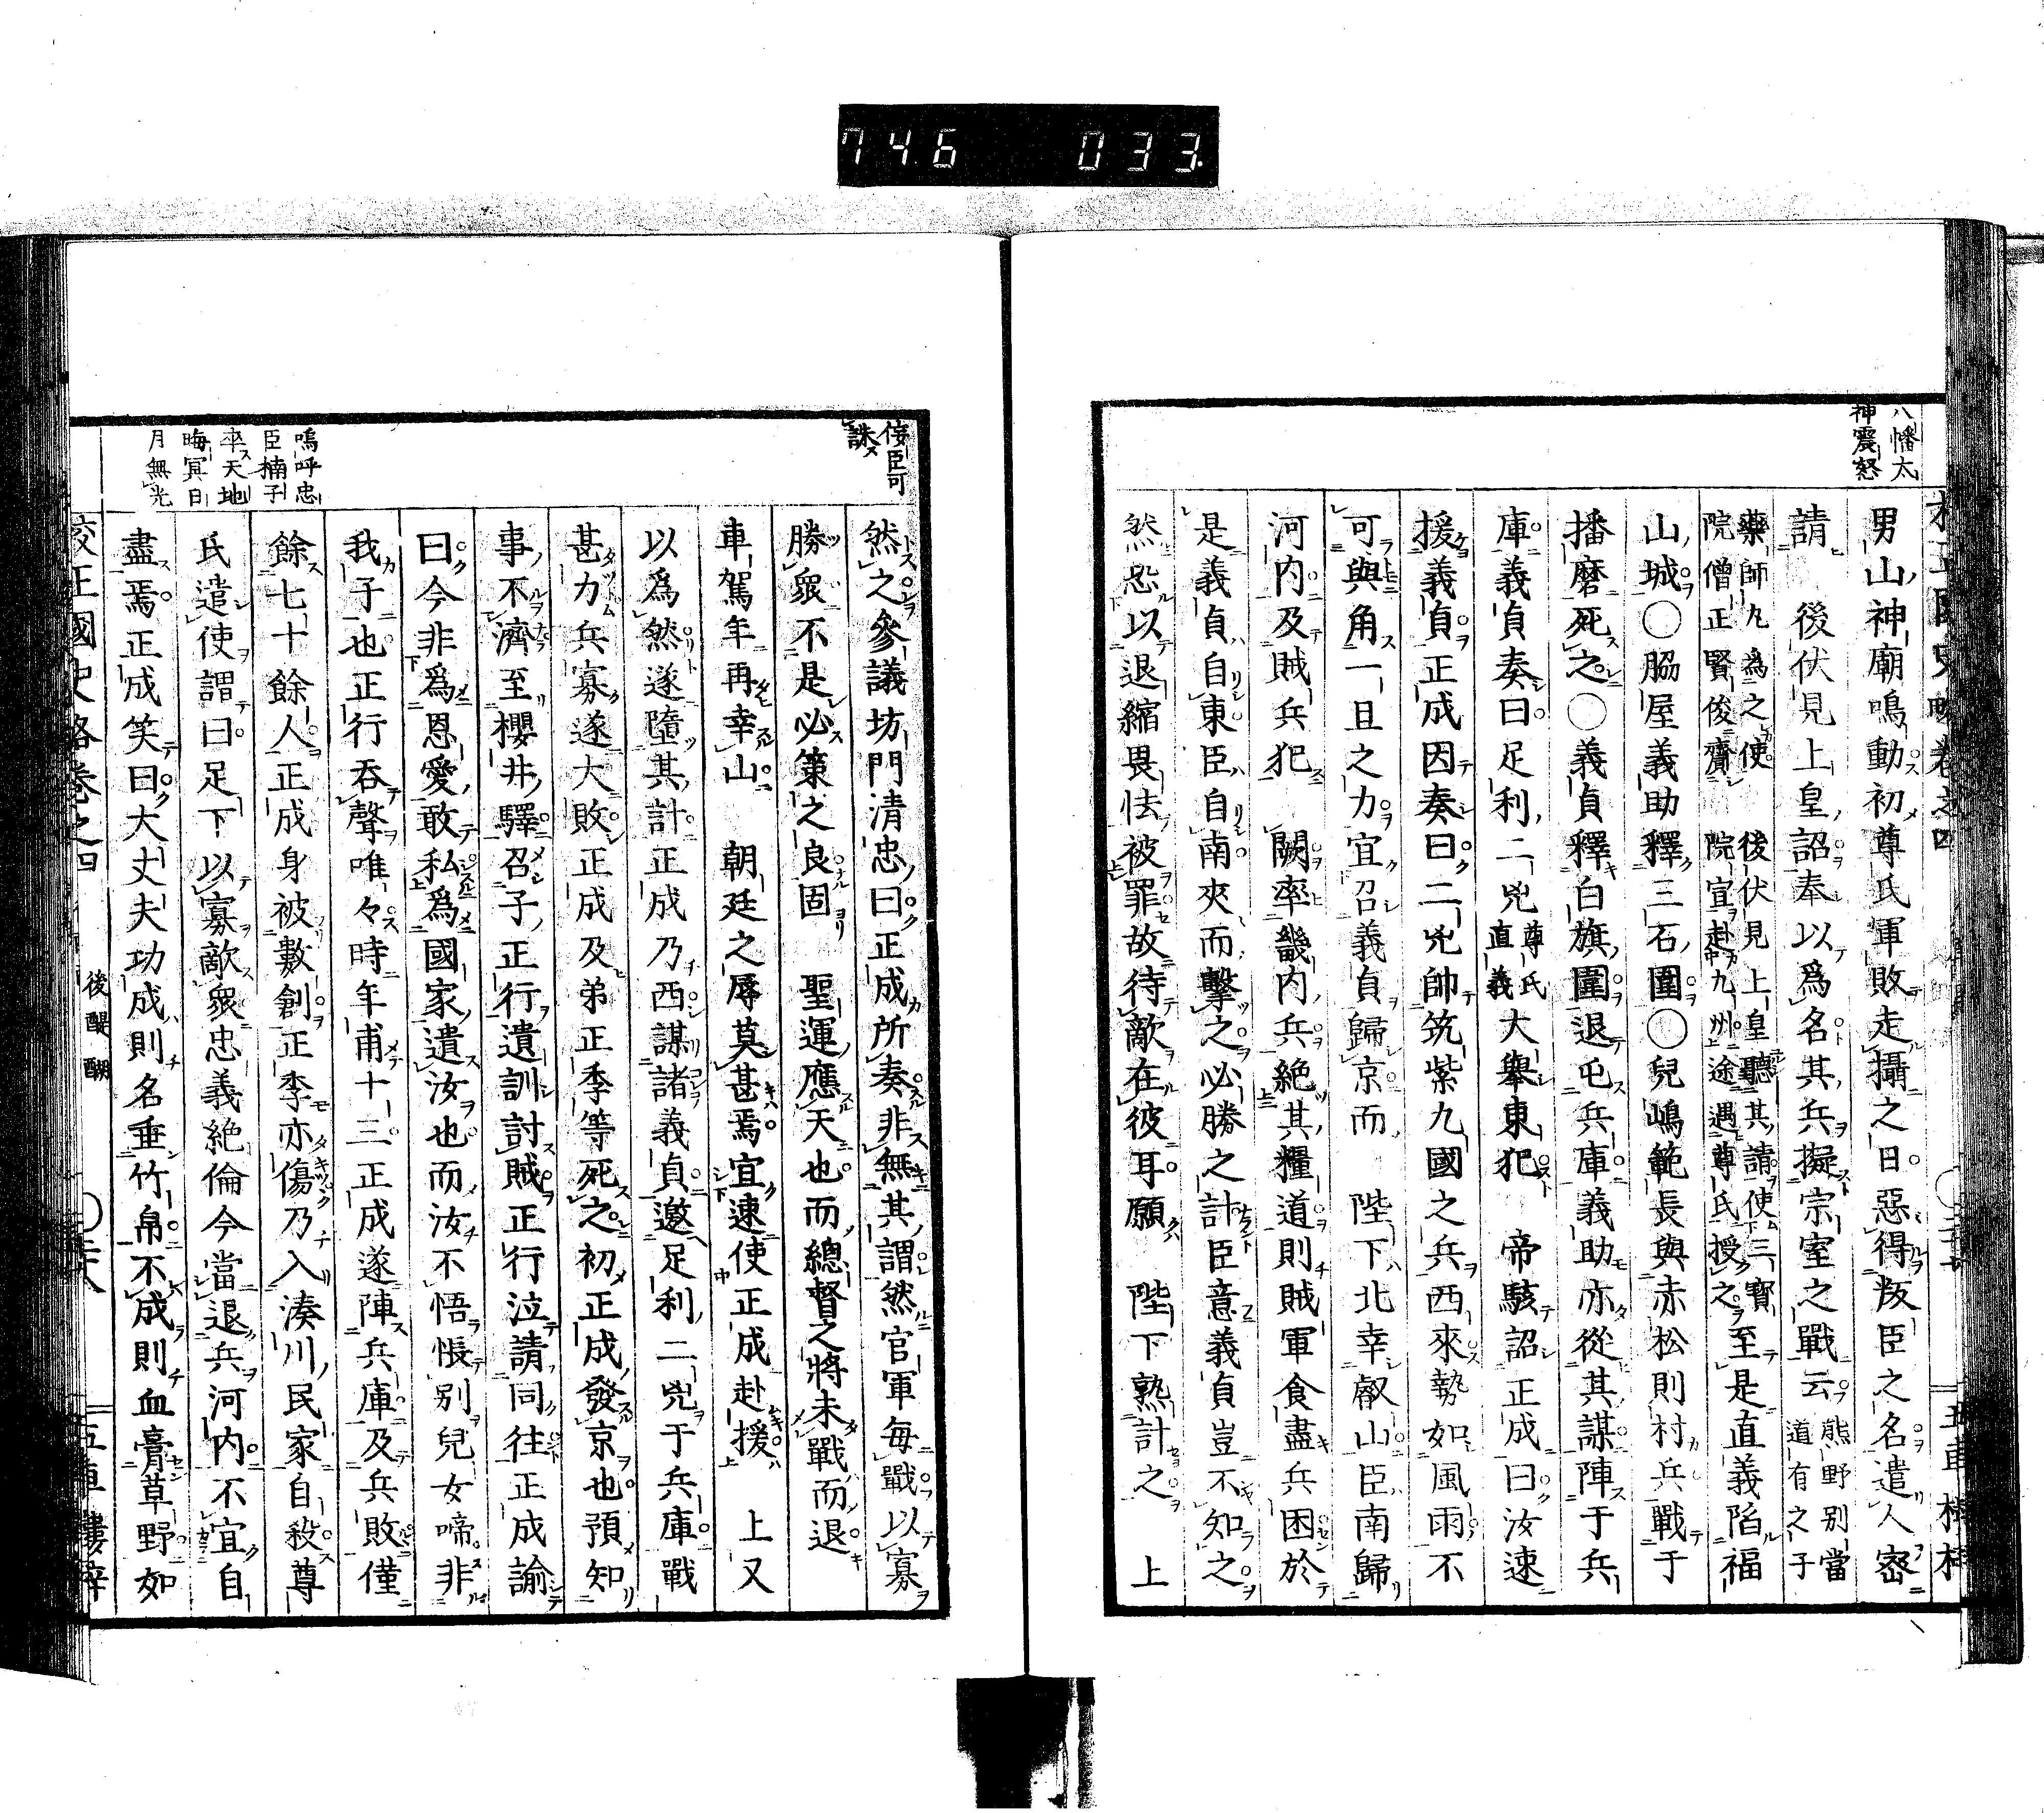 746 033
八幡太
神震怒
男山神廟鳴動初尊氏軍敗走攝之日惡得叛臣之名遣人密
請　後伏見上皇詔奉以爲名其兵擬宗室之戰云熊野別當道有之子
藥師丸爲之使　後伏見上皇聽其請使三寶院僧正賢俊齎　院宣赴九州途遇尊氏授之至是直義陷福
山城〇脇屋義助釋三石圍〇兒嶋範長與赤松則村兵戰于
播磨死之〇義貞釋白旗圍退屯兵庫義助亦從其謀陣于兵
庫義貞奏曰足利二兇尊氏直義大舉東犯　帝駭詔正成曰汝速
援義貞正成因奏曰二兇帥筑紫九國之兵西來勢如風雨不
可與角一旦之力宜召義貞歸京而　陛下北幸叡山臣南歸
河内及賊兵犯　闕率畿内兵絶其糧道則賊軍食盡兵困於
是義貞自東臣自南夾而擊之必勝之計臣意義貞豈不知之
然恐以退縮畏怯被罪故待敵在彼耳願　陛下熟計之　上
佞臣可
誅
然之參議坊門清忠曰正成所奏非無其謂然官軍毎戰以寡
勝衆不是必策之良固　聖運應天也而總督之將未戰而退
車駕年再幸山　朝廷之辱莫甚焉宜速使正成赴援　上又
以爲然遂墮其計正成乃西謀諸義貞邀足利二兇于兵庫戰
甚力兵寡遂大敗正成及弟正季等死之初正成發京也預知
事不濟至櫻井驛召子正行遺訓討賊正行泣請同往正成諭
曰今非爲恩愛敢私爲國家遺汝也而汝不悟悵别兒女啼非
我子也正行吞聲唯々時年甫十三正成遂陣兵庫及兵敗僅
餘七十餘人正成身被數創正季亦傷乃入湊川民家自殺尊
氏遣使謂曰足下以寡敵衆忠義絶倫今當退兵河内不宜自
盡焉正成笑曰大丈夫功成則名垂竹帛不成則血膏草野如
嗚呼忠
臣楠子
卒天地
晦冥日
月無光
校正國史略卷之四　後醍醐　五車樓梓